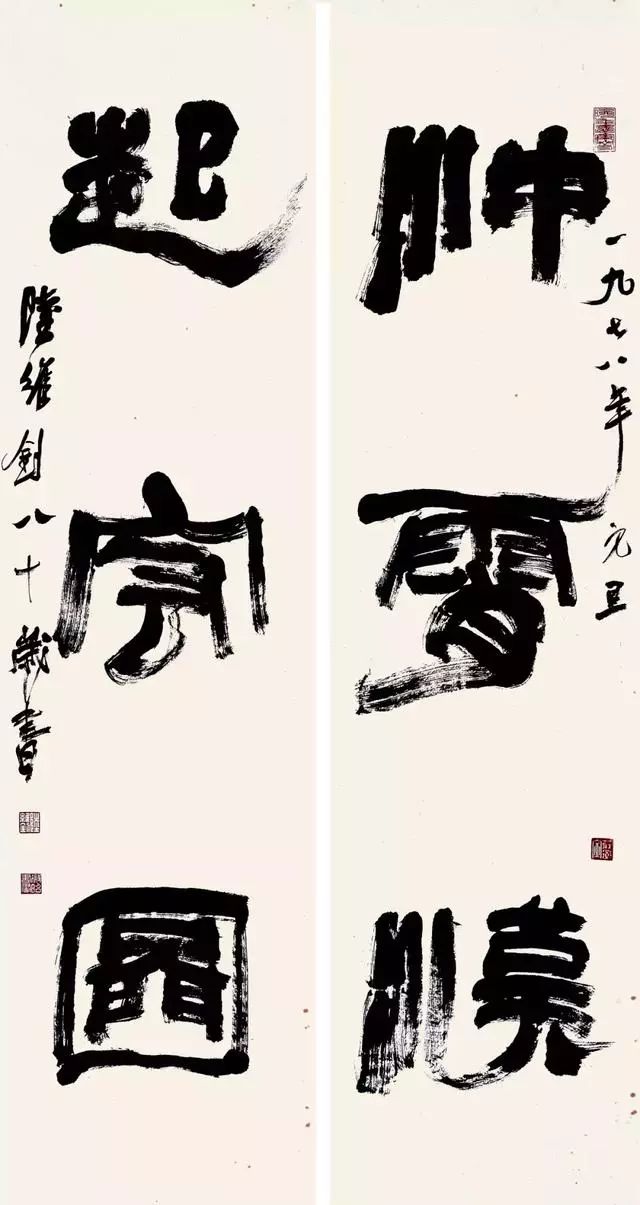 一九七八年元旦
沖霄漢
起宏圖
陸維釗八十歲書